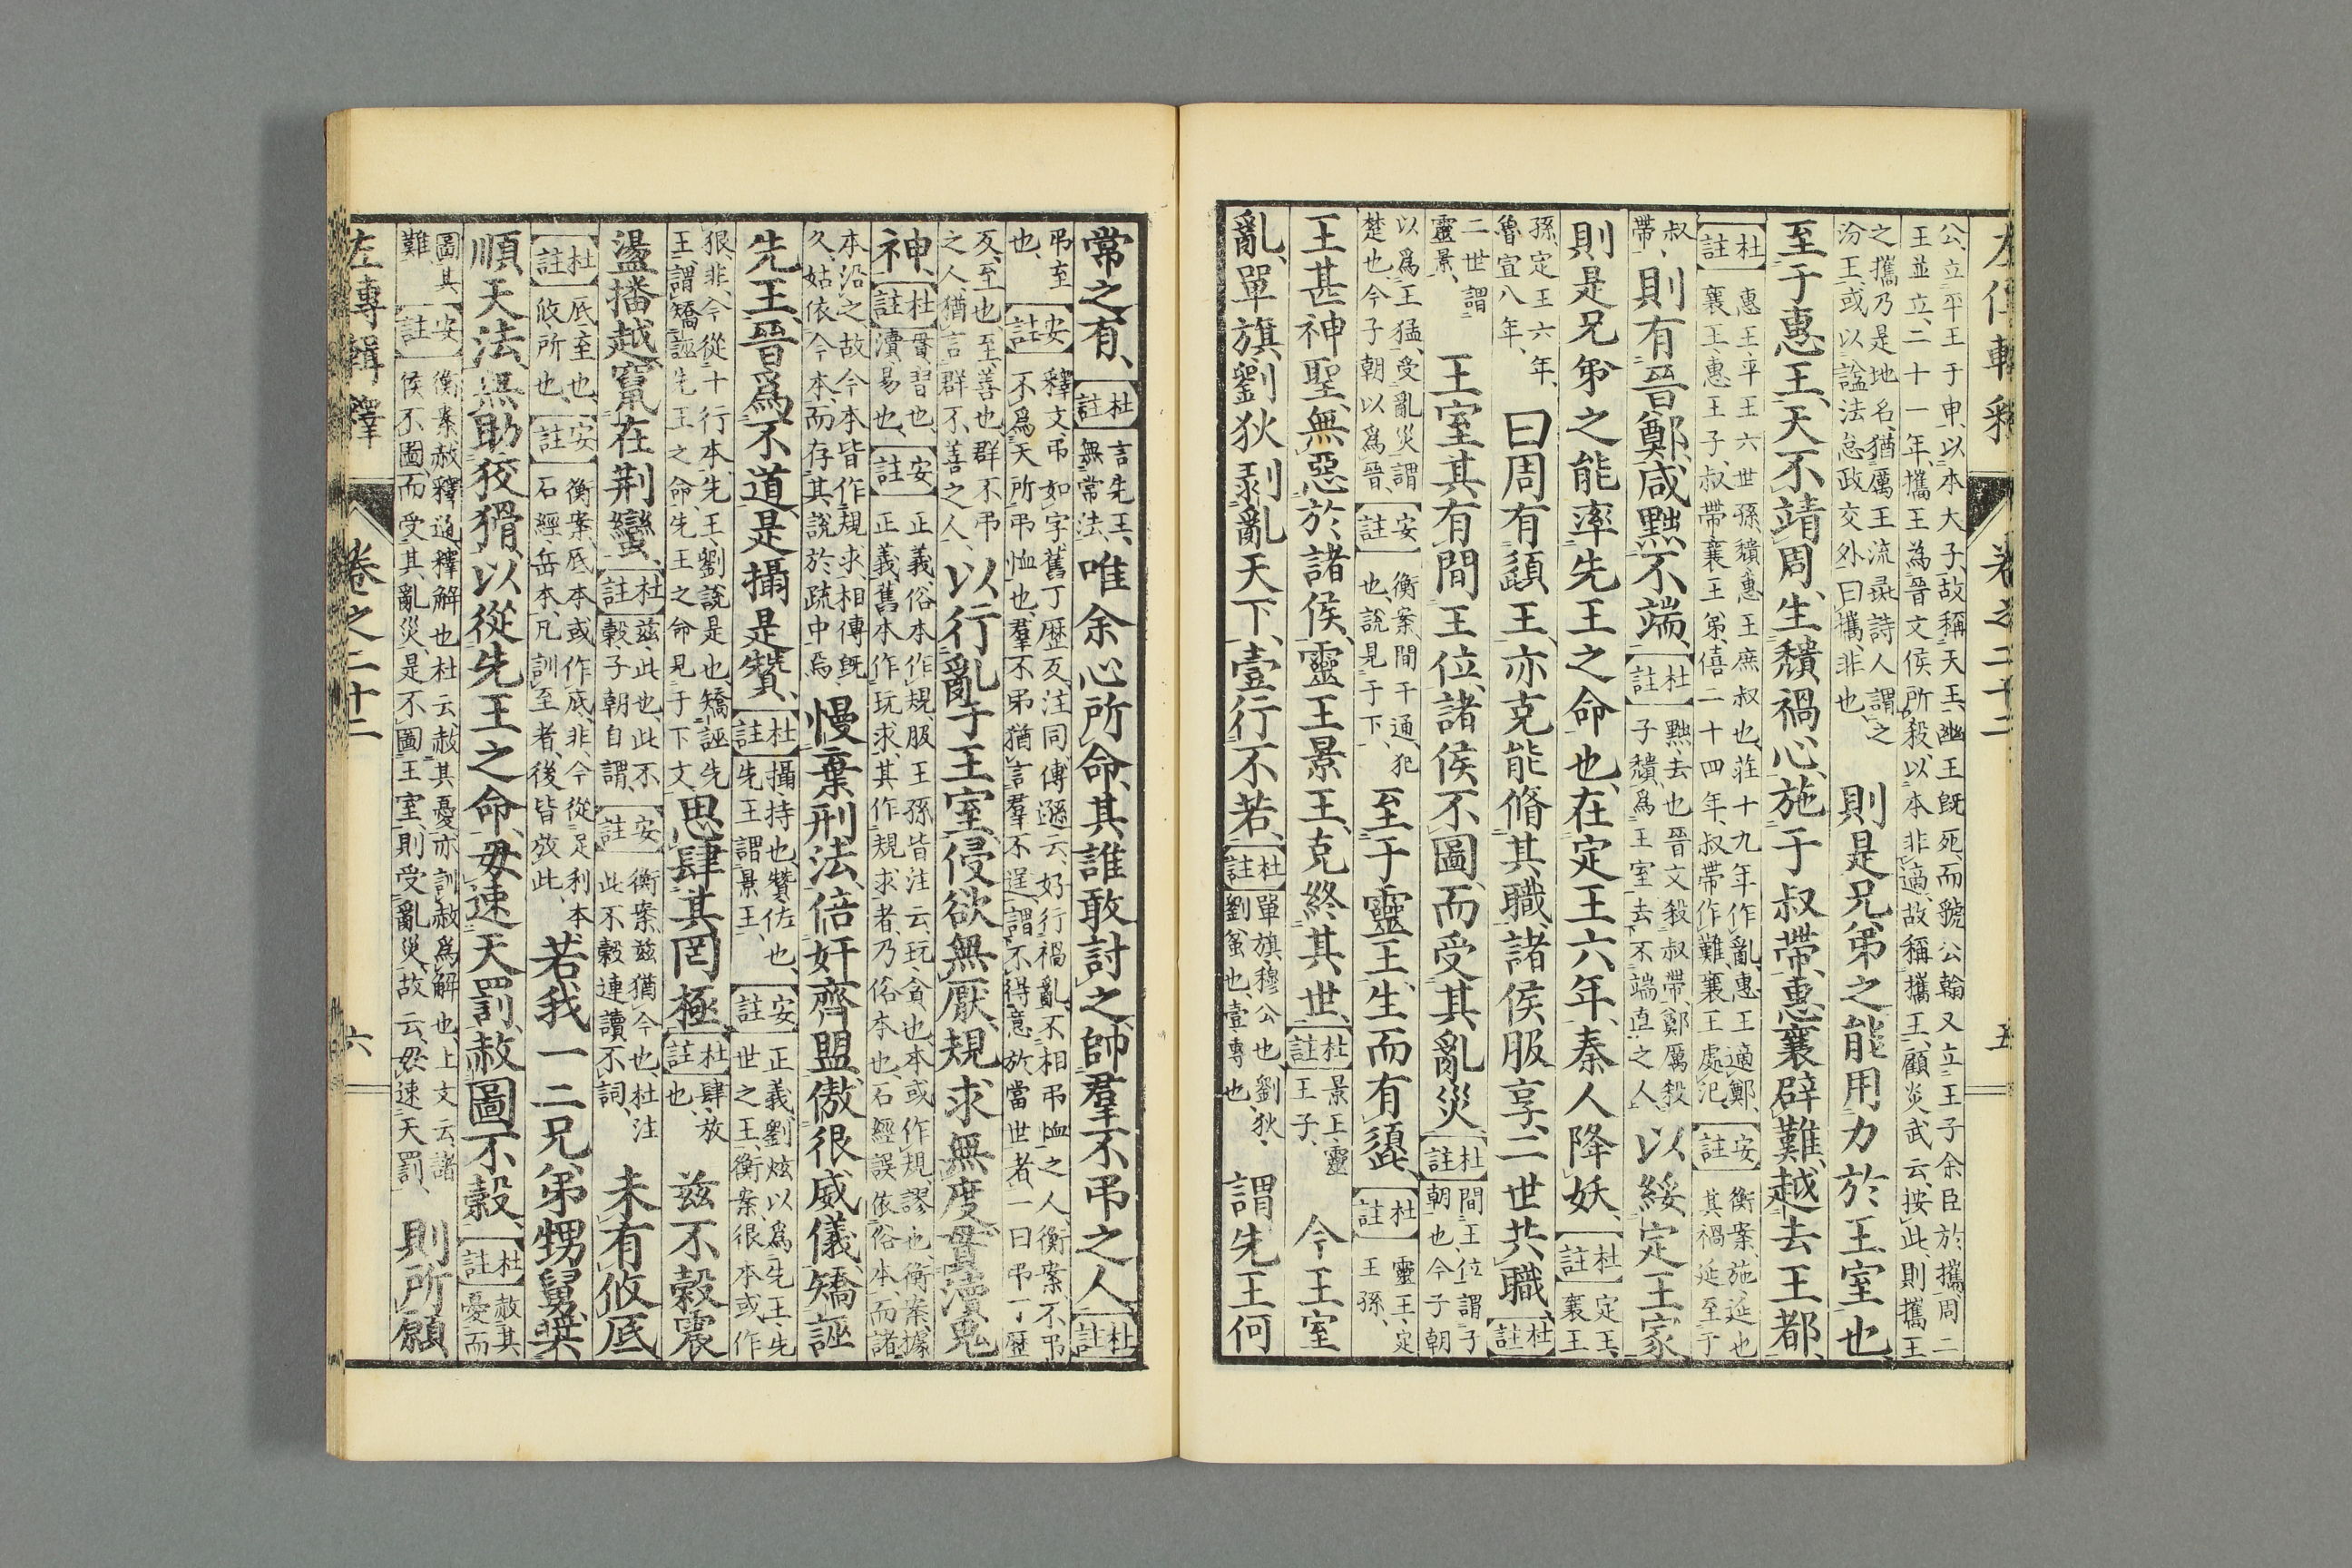 左傳輯釋 卷之二十二 五
公立平王于申以本大子故稱天王幽王旣死而虢公翰又立王子余臣於攜周二
王並立二十一年攜王為晉文侯所殺以本非適故稱攜王顧炎武云按此則攜王
之攜乃是地名猶厲王流彘詩人謂之
汾王或以謚法怠政交外曰攜非也 則是兄弟之能用力於王室也
至于惠王天不靖周生穨禍心施于叔帶惠襄辟難越去王都
杜註 惠王平王六世孫穨惠王庶叔也莊十九年作亂惠王適鄭
襄王惠王子叔帶襄王弟僖二十四年叔帶作難襄王處氾 安註 衡案施延也
其禍延至于
叔
帶 則有晉鄭咸黜不端 杜註 黜去也晉文殺叔帶鄭厲殺
子穨為王室去不端直之人 以綏定王家
則是兄弟之能率先王之命也在定王六年秦人降妖 杜註 定王
襄王
孫定王六年
魯宣八年 曰周有頿王亦克能脩其職諸侯服享二世共職 杜註
二世謂
靈景 王室其有間王位諸侯不圖而受其亂災 杜註 間王位謂子
朝也今子朝
以為王猛受亂災謂
楚也今子朝以為晉 安註 衡案間干通犯
也說見于下 至于靈王生而有頿 杜註 靈王定
王孫
王甚神聖無惡於諸侯靈王景王克終其世 杜註 景王靈
王子 今王室
亂單旗劉狄剥亂天下壹行不若 杜註 單旗穆公也劉狄
劉蚠也壹專也 謂先王何
常之有 杜註 言先王
無常法 唯余心所命其誰敢討之帥羣不弔之人 杜註
弔至
也 安註 釋文弔如字舊丁歷反注同傅遜云好行禍亂不相弔恤之人衡案不弔
不為天所弔恤也羣不弔猶言羣不逞謂不得意於當世者一曰弔丁歷
反至也至善也群不弔
之人猶言群不善之人 以行亂于王室侵欲無厭規求無度貫瀆鬼
神 杜註 貫習也
瀆易也 安註 正義俗本作規服王孫皆注云玩貪也本或作規謬也衡案據
正義舊本作玩求其作規求者乃俗本也石經誤依俗本而諸
本沿之故今本皆作規求相傳旣
久姑依今本而存其說於疏中焉 慢棄刑法倍奸齊盟傲很威儀矯誣
先王晉為不道是攝是贊 杜註 攝持也贊佐也
先王謂景王 安註 正義劉炫以為先王先
世之王衡案很本或作
狠非今從十行本先王劉說是也矯誣先
王謂矯誣先王之命先王之命見于下文 思肆其罔極 杜註 肆放
也 茲不穀震
盪播越竄在荆蠻 杜註 茲此也此不
穀子朝自謂 安註 衡案茲猶今也杜注
此不穀連讀不詞 未有攸厎
杜註 厎至也
攸所也 安註 衡案厎本或作底非今從足利本
石經岳本凡訓至者後皆放此 若我一二兄弟甥舅獎
順天法無助狡猾以從先王之命毋速天罰赦圖不穀 杜註 赦其
憂而
圖其
難 安註 衡案赦釋通釋解也杜云赦其憂亦訓赦為解也上文云諸
侯不圖而受其亂災是不圖王室則受亂災故云毋速天罰 則所願
左傳輯釋 卷之二十二 六